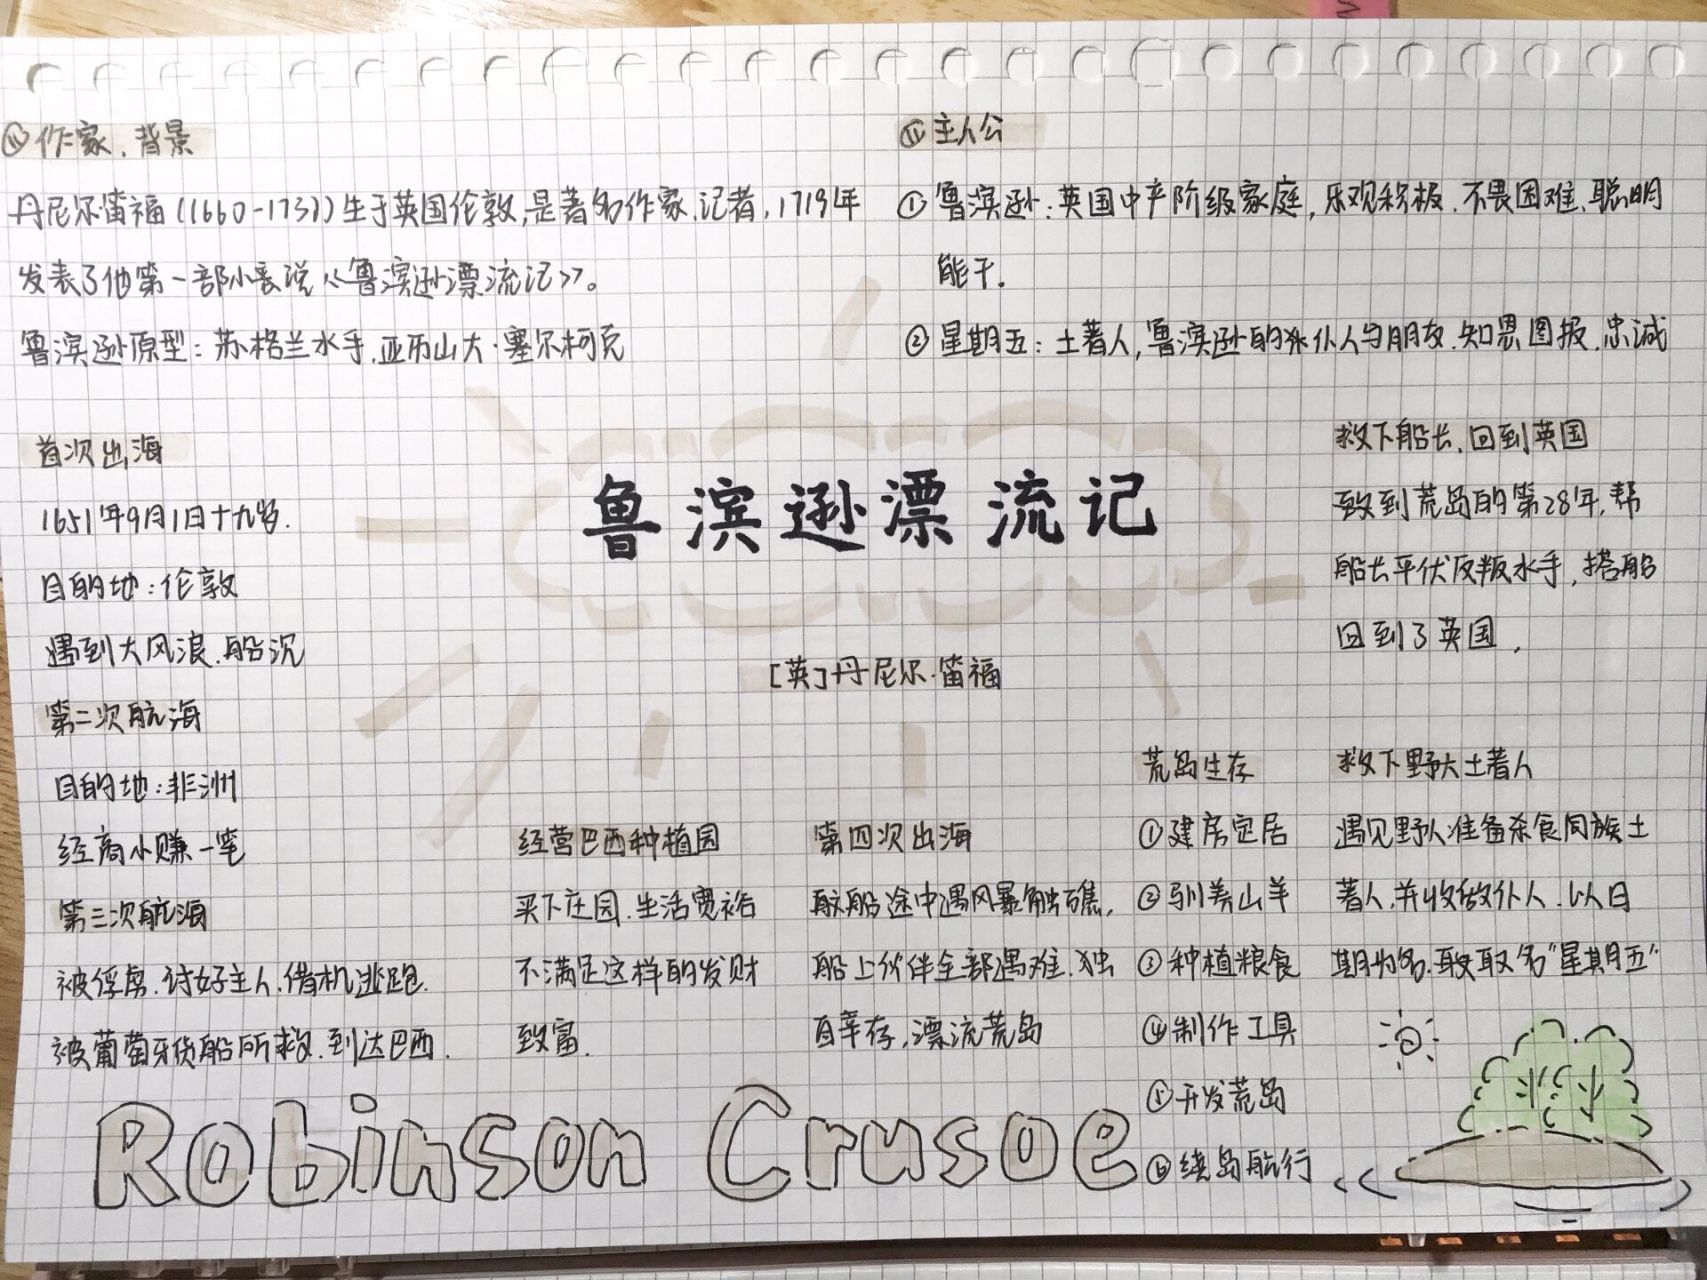 ⑴作家、背景
丹尼尔·笛福(1660-1731)生于英国伦敦,是著名作家、记者,1719年
发表了他第一部小长说《鲁滨逊漂流记》。
鲁滨逊原型:苏格兰水手、亚历山大·塞尔柯克
⑵主人公
①鲁滨逊:英国中产阶级家庭,乐观积极、不畏困难、聪明
能干。
②星期五:土著人,鲁滨逊的仆人与朋友、知恩图报、忠诚
首次出海
1651年9月1日十九岁.
目的地:伦敦
遇到大风浪、船沉
第二次航海
目的地:非洲
经商小赚一笔
第三次航海
被俘虏、讨好主人、借机逃跑.
被葡萄牙货船所救、到达巴西.
鲁滨逊漂流记
[英]丹尼尔·笛福
经营巴西种植园
买下庄园、生活宽裕
不满足这样的发财
致富.
第四次出海
船途中遇风暴触礁,
船上伙伴全部遇难、独
自幸存,漂流荒岛
荒岛生存
①建房定居
②驯养山羊
③种植粮食
④制作工具
⑤开发荒岛
⑥绕岛航行
救下野人土著人
遇见野人准备杀食同族土
著人,并收做仆人、以日
期为名、取名"星期五"
救下船长,回到英国
到荒岛的第28年,帮
船长平伏反叛水手,搭船
回到了英国,
Robinson Crusoe